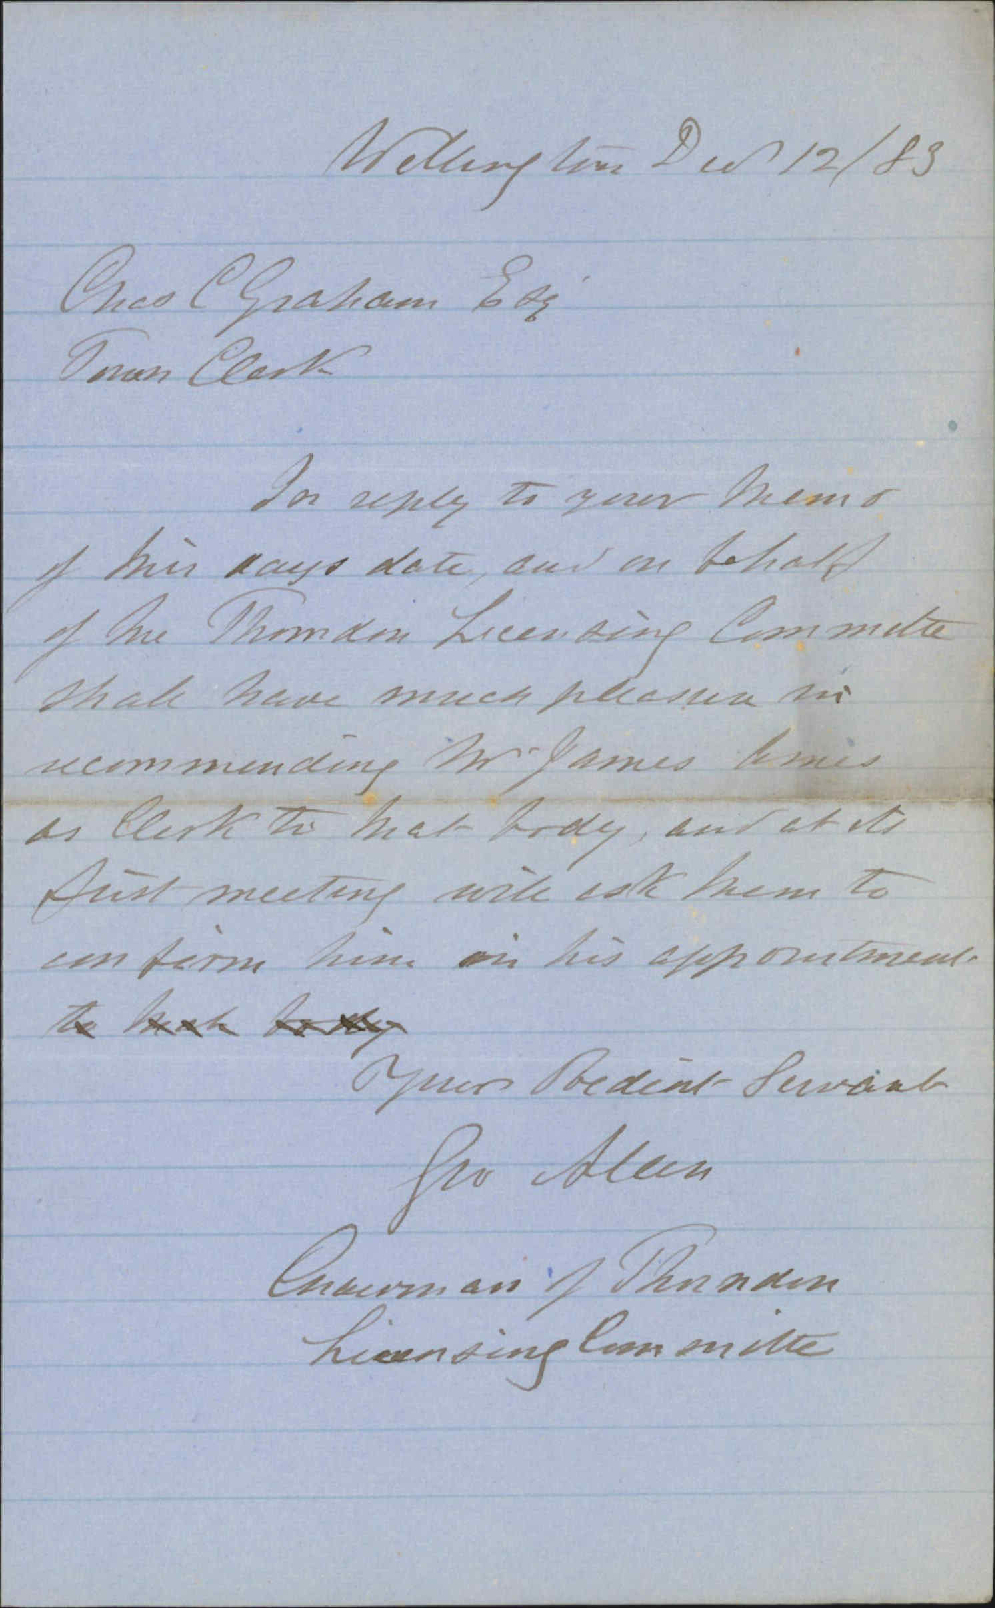 Wellington Decr 12/83
Chas C Graham Esq
Town Clerk
In reply to your Memo
of this days date, and on behalf
of the Thorndon Licensing Committe
shall have much pleasure in
recommending Mr James Ames
as Clerk to that body, and at its
first meeting will ask them to
confirm him in his appointment
to that body
Your Obedient Servant
Geo Allen
Chairman of Thorndon
Licensing Committe